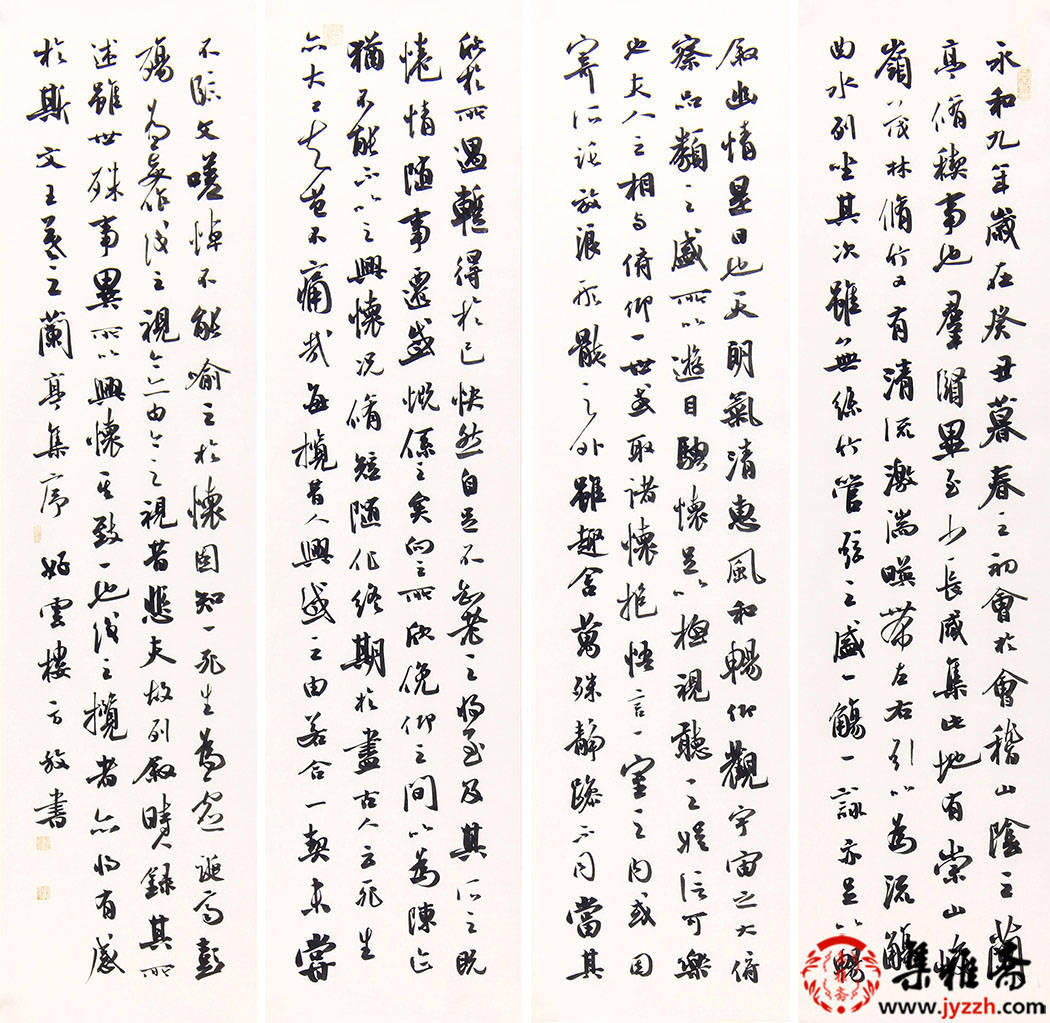 永和九年歲在癸丑暮春之初會於會稽山陰之蘭
亭脩稧事也羣賢畢至少長咸集此地有崇山峻
嶺茂林脩竹又有清流激湍暎帶左右引以為流觴
曲水列坐其次雖無絲竹管弦之盛一觴一詠亦足以暢
敘幽情是日也天朗氣清惠風和暢仰觀宇宙之大俯
察品類之盛所以遊目騁懷足以極視聽之娛信可樂
也夫人之相與俯仰一世或取諸懷抱悟言一室之內或因
寄所託放浪形骸之外雖趣舍萬殊靜躁不同當其
欣於所遇暫得於己快然自足不知老之將至及其所之既
惓情隨事遷感慨係之矣向之所欣俛仰之間以為陳迹
猶不能不以之興懷況脩短隨化終期於盡古人云死生
亦大矣豈不痛哉每攬昔人興感之由若合一契未嘗
不臨文嗟悼不能喻之於懷固知一死生為虛誕齊彭
殤為妄作後之視今亦由今之視昔悲夫故列敘時人錄其所
述雖世殊事異所以興懷其致一也後之攬者亦將有感
於斯文王羲之蘭亭集序 好雲樓 方放書
集雅斋
www.jyzzh.com